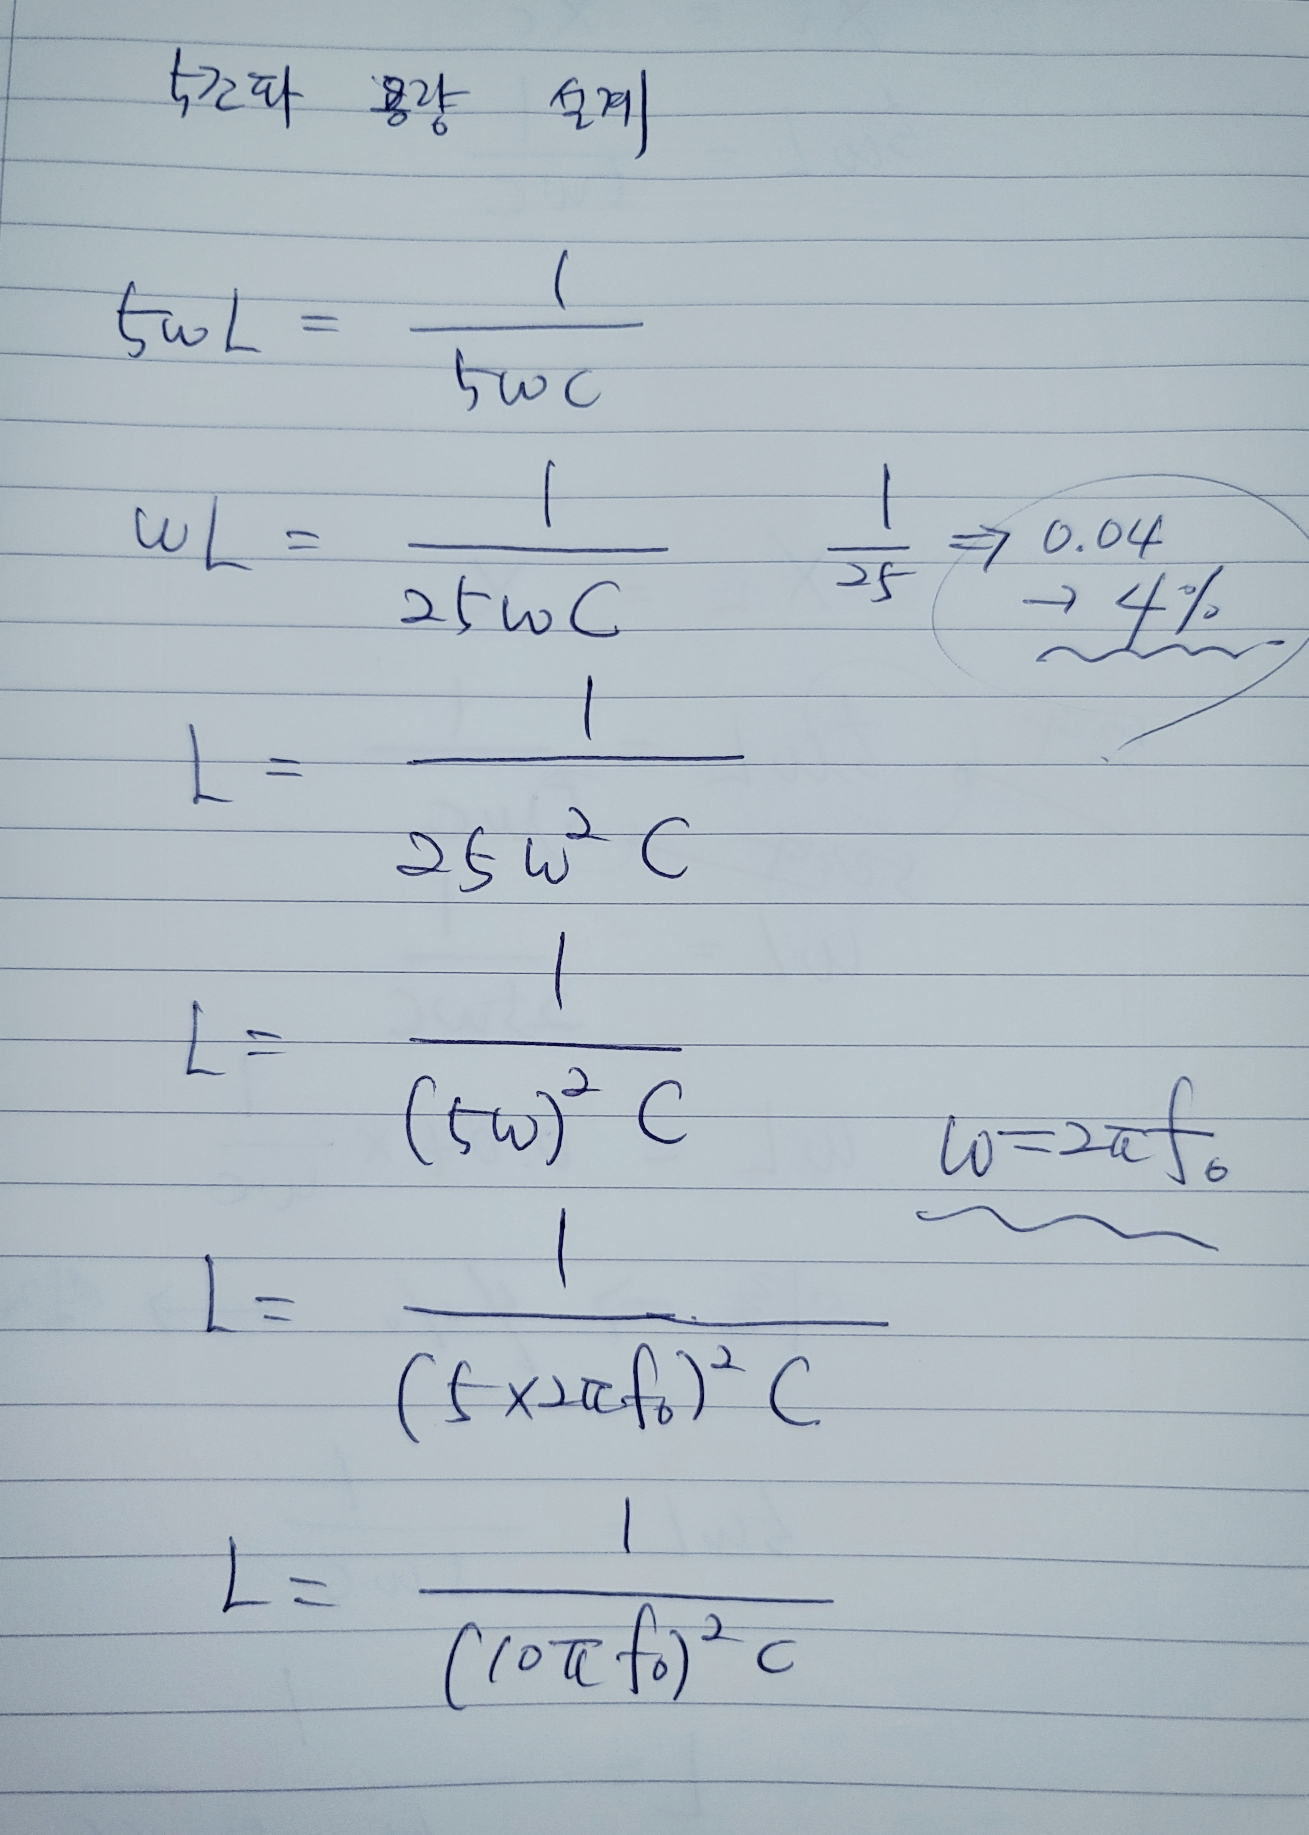 5고조파 용량 설계
5ωL = 1/5ωC
ωL = 1/25ωC 1/25 ⇒ 0.04
→ 4%
L = 1/25ω² C
L = 1/(5ω)² C ω=2πf₀
L = 1/(5×2πf₀)² C
L = 1/(10πf₀)² C